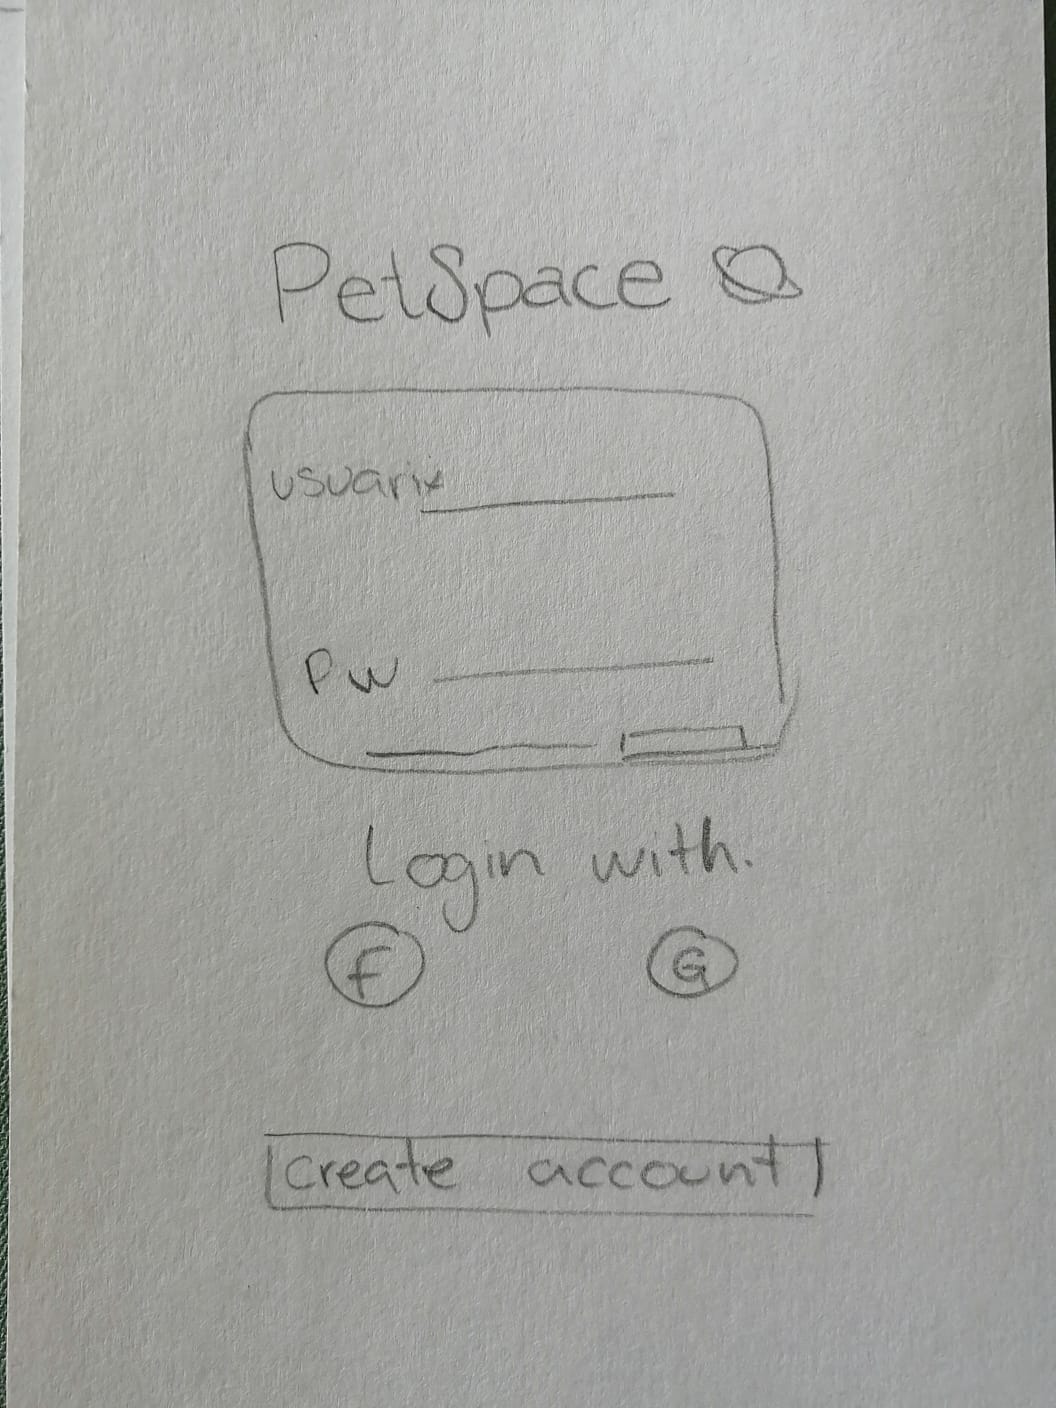 PetSpace
usuarix
Pw
Login with.
f G
create account